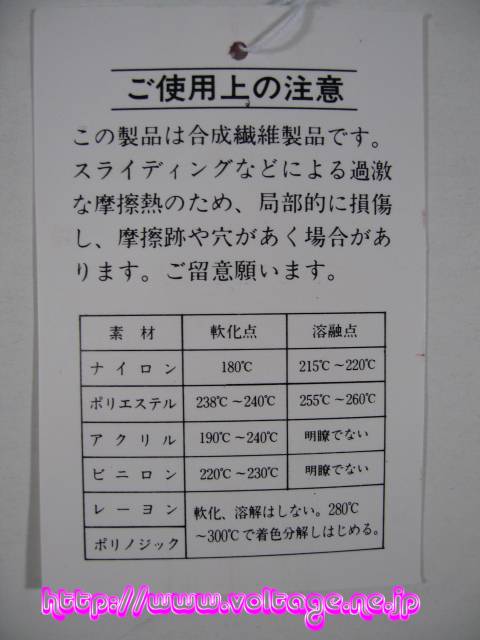 ご使用上の注意
この製品は合成繊維製品です。
スライディングなどによる過激
な摩擦熱のため、局部的に損傷
し、摩擦跡や穴があく場合があ
ります。ご留意願います。
素材 軟化点 溶融点
ナイロン 180℃ 215℃～220℃
ポリエステル 238℃～240℃ 255℃～260℃
アクリル 190℃～240℃ 明瞭でない
ビニロン 220℃～230℃ 明瞭でない
レーヨン 軟化、溶解はしない。280℃
ポリノジック ～300℃で着色分解しはじめる。
http://www.voltage.ne.jp